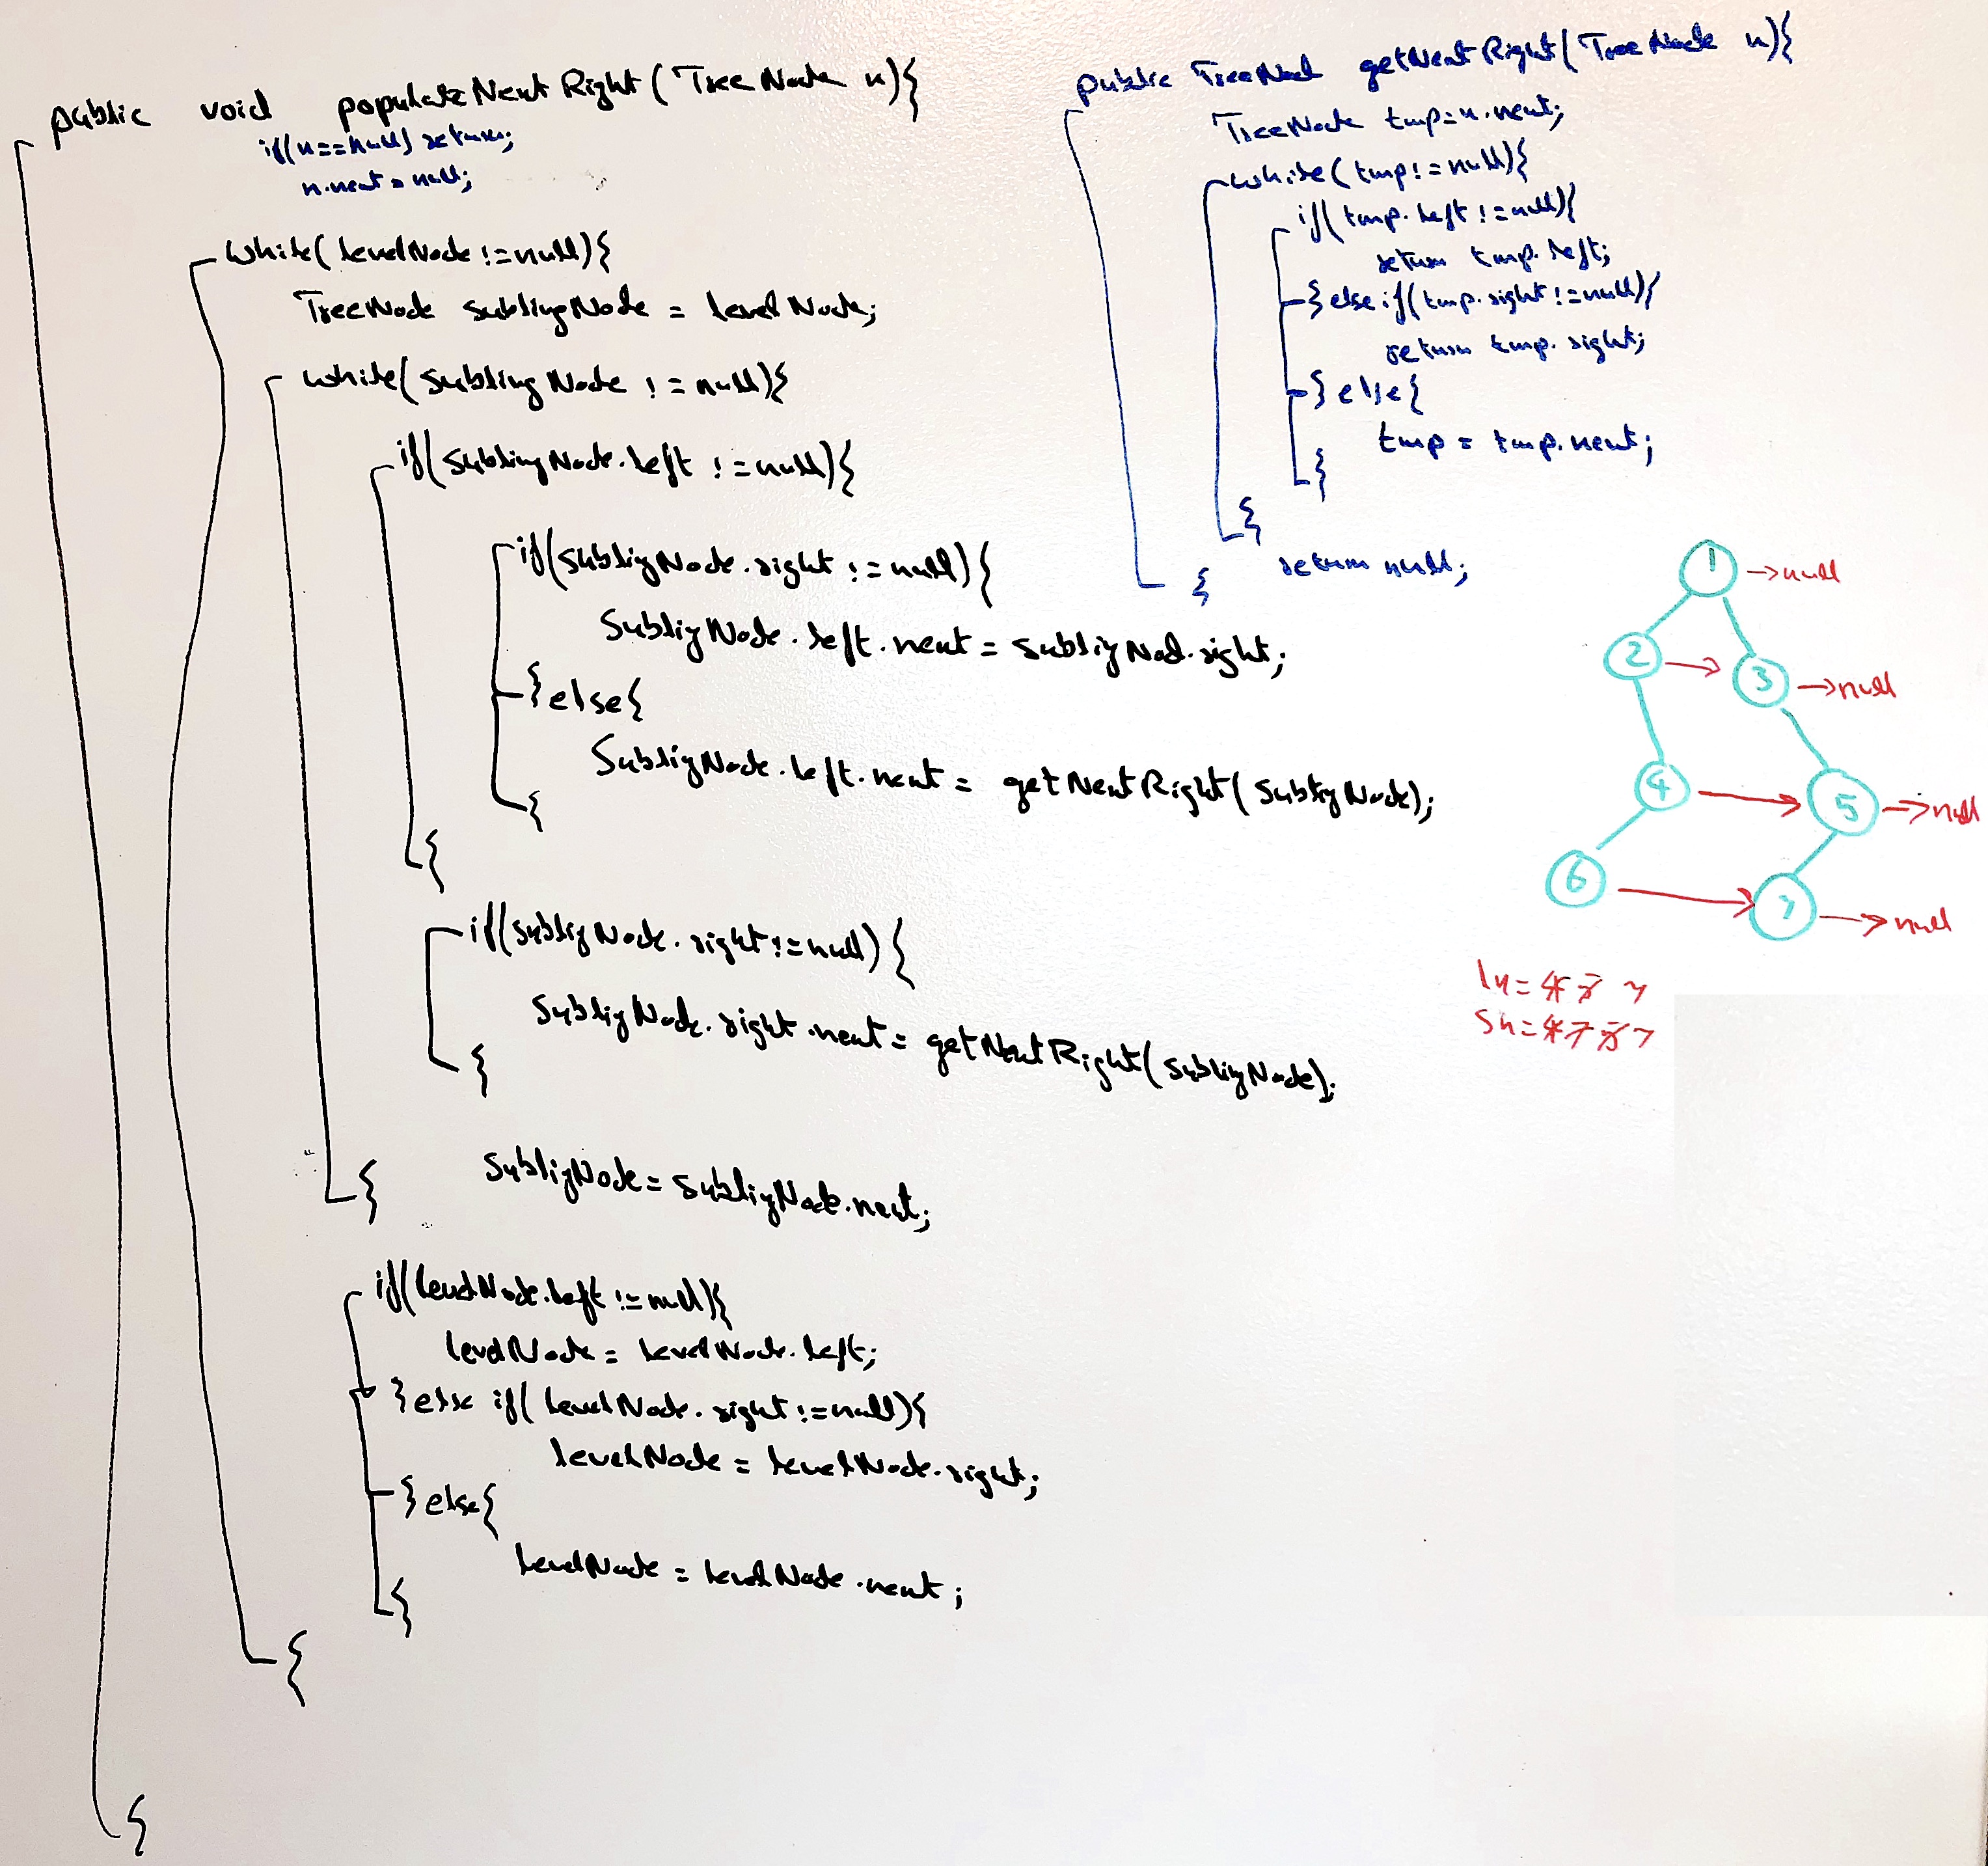 public void populateNextRight(TreeNode n){
if(n==null) return;
n.next = null;
while(levelNode!=null){
TreeNode sublingNode = levelNode;
while(sublingNode != null){
if(sublingNode.left != null){
if(subligNode.right != null){
subligNode.left.next = subligNod.right;
}else{
SubligNode.left.next = getNextRight(subligNode);
}
}
if(subligNode.right!=null){
subligNode.right.next = getNextRight(subligNode);
}
subligNode = subligNode.next;
}
if(levelNode.left != null){
levelNode = levelNode.left;
}else if(levelNode.right!=null){
levelNode = levelNode.right;
}else{
levelNode = levelNode.next;
}
}
}
public TreeNod getNextRight(TreeNode n){
TreeNode tmp=n.next;
while(tmp!=null){
if(tmp.left!=null){
return tmp.left;
}else if(tmp.right!=null){
return tmp.right;
}else{
tmp = tmp.next;
}
}
return null;
}
1 →null
2 → 3 →null
4 → 5 →null
6 → 7 →null
ln=
sn=